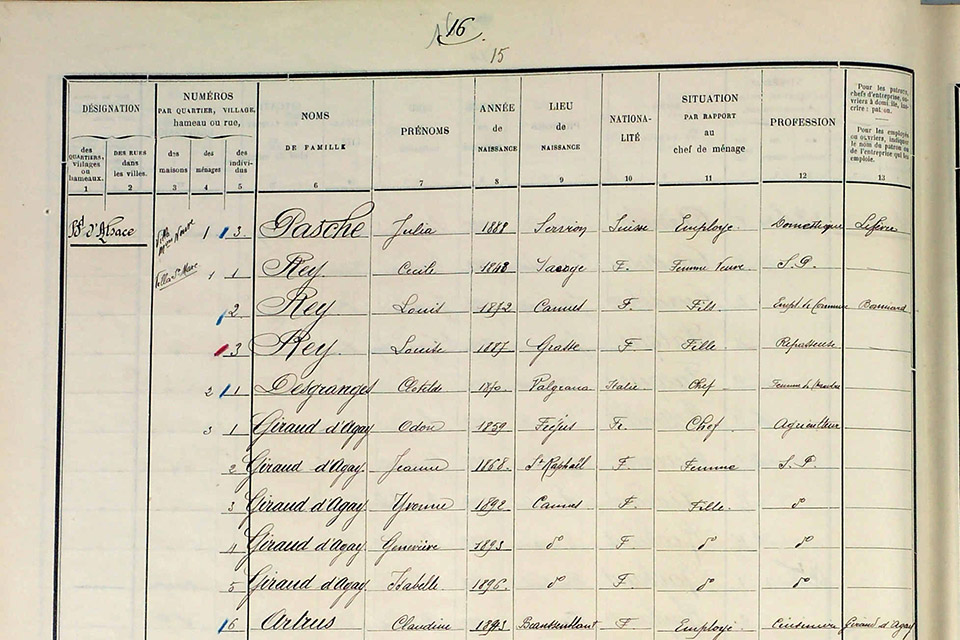 16
15
DÉSIGNATION
NUMÉROS
PAR QUARTIER, VILLAGE,
hameau ou rue,
NOMS
DE FAMILLE
PRÉNOMS
ANNÉE
de
NAISSANCE
LIEU
de
NAISSANCE
NATIONA-
LITÉ
SITUATION
PAR RAPPORT
au
chef de ménage
PROFESSION
Pour les patrons,
chefs d'entreprise, ou-
vriers à domicile, ins-
crire : patron.
Pour les employés
ou ouvriers, indiquer
le nom du patron ou
de l'entreprise qui les
emploie.
des
QUARTIERS,
villages
ou
hameaux.
DES RUES
dans
les villes.
des
maisons
des
ménages
des
indivi-
dus
1 2 3 4 5 6 7 8 9 10 11 12 13
Bd d'Alsace 1 3 Pasche Julia 1888 Servion Suisse Employe Domestique Lefèvre
Villa St Marc 1 1 Rey Cecile 1848 F. Femme Veuve S.P.
2 Rey Louis 1872 Cannes F. Fils Empl. de Commerce
3 Rey Louise 1887 Grasse F Fille Repasseuse
2 1 Desgranges Clotilde 1870 Italie Chef
3 1 Giraud d'Agay Odon 1859 Fréjus Fr. Chef Agriculteur
2 Giraud d'Agay Jeanne 1868 St Raphaël F. Femme S.P.
3 Giraud d'Agay Yvonne 1892 Cannes F. Fille do
4 Giraud d'Agay Geneviève 1893 do F do do
5 Giraud d'Agay Isabelle 1896 do F do do
6 Artrus Claudine F Employé Cuisinière Giraud d'Agay